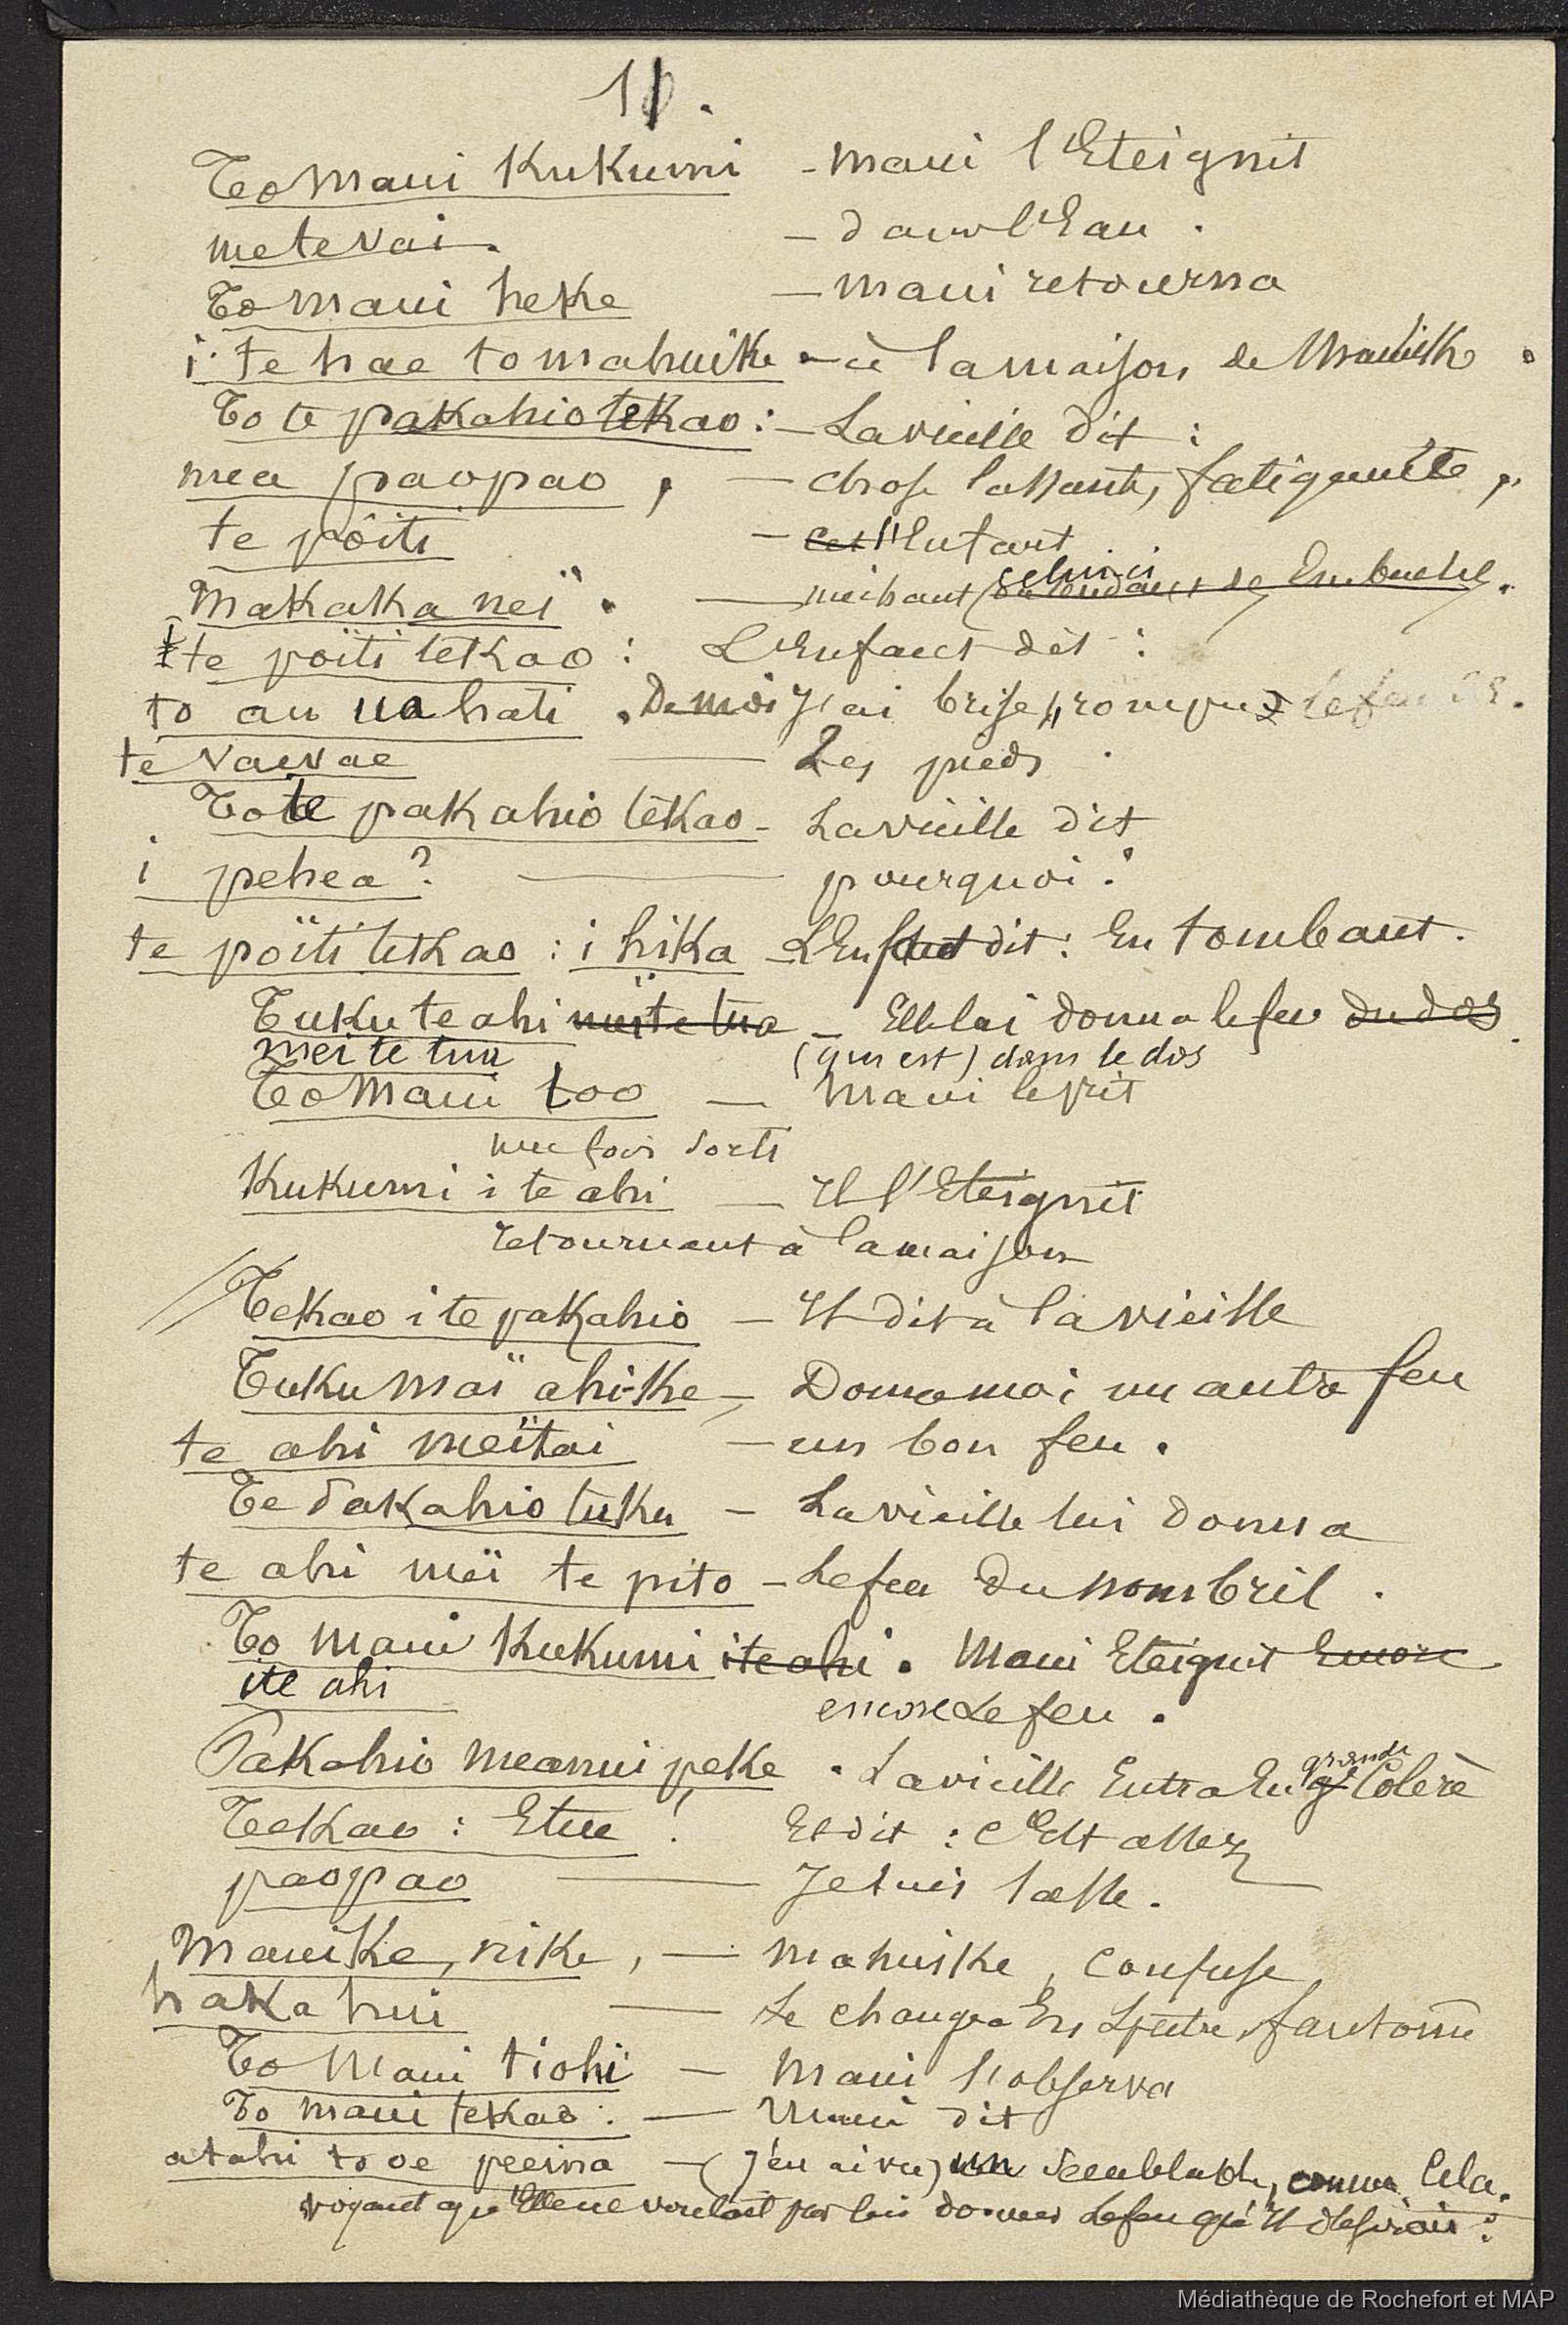 11.
To Maui Kukumi - Maui l'Eteignit
me te vai. - dans l'Eau.
To Maui heke - Maui retourna
i te hae to mahuike - à la maison de Mauike.
To te pakahio tekao : - La vieille dit :
mea paopao, - chose lassante, fatiguante,
te pôiti - l'Enfant
Makaka neï. - méchant celui ci
te poïti tekao : L'Enfant dit :
to au ua hati. J'ai brisé, rompu
te vaevae - Les pieds.
To te pakahio tekao - La vieille dit
i pehea? - pourquoi?
te poïti tekao : i hika - L'Enfant dit : En tombant.
Tuku te ahi meïte tua - Elle lui donna le feu du dos.
mei te tua (qui est) dans le dos
To Maui too - Maui le prit
une fois sorti
Kukumi i te ahi - Il l'Eteignit
retournant à la maison
// Tekao i te pakahio - Il dit à la vieille
Tuku maï ahi-ke - Donne moi un autre feu
te ahi meïtai - un bon feu.
Te Pakahio tuku - La vieille lui donna
te ahi meï te pito - Le feu du nombril.
To Maui Kukumi i te ahi. Maui Eteignit Encore
ite ahi encore Le feu.
Pakahio meanui peke. La vieille Entra En gde grande Colère
Tekao : Etue ! Et dit : C'Est assez
paopao - Je suis lasse.
Mauike, nike, - Mahuike, confuse,
haka hui - Se changea En Spectre, fantome
To Maui tiohi - Maui l'observa
To Maui tekao : - Maui dit
atahi to oe peeina - (J'en ai vu) un semblable, comme Cela.
voyant qu'Elle ne voulait pas lui donner Le feu qu'Il desirait :
Médiathèque de Rochefort et MAP